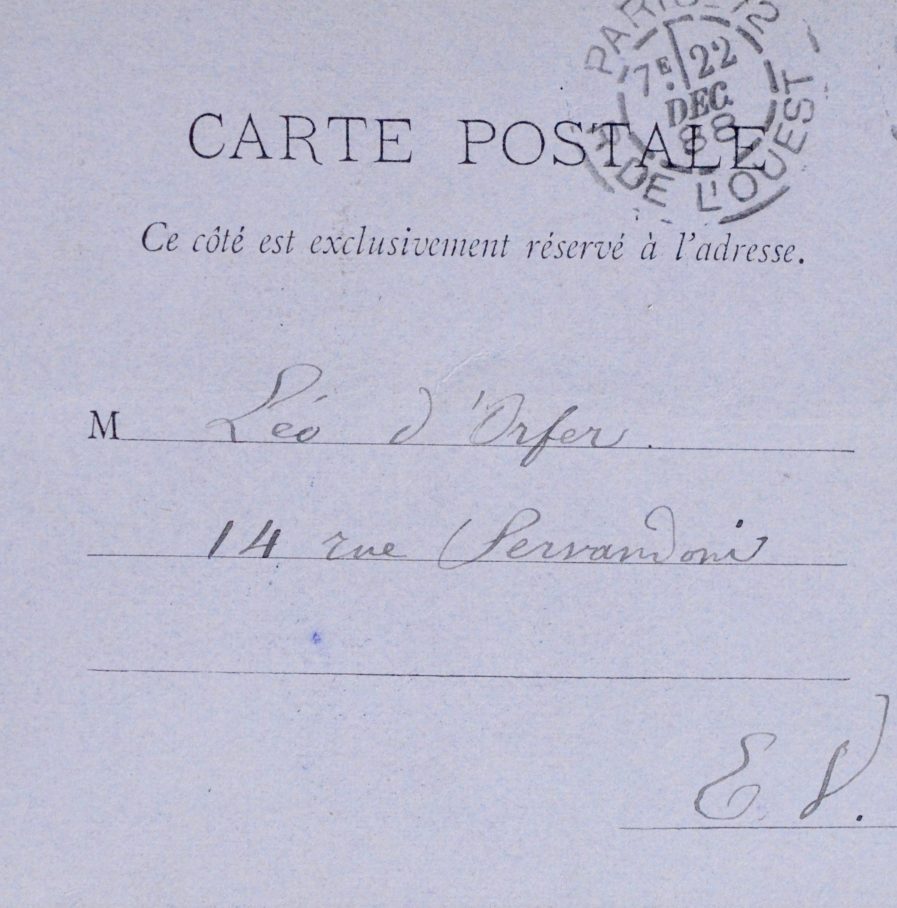 PARIS-12
7E 22
DEC.
88
DE L'OUEST
CARTE POSTALE
Ce côté est exclusivement réservé à l'adresse.
M Léo d'Orfer.
14 rue Servandoni
E. V.